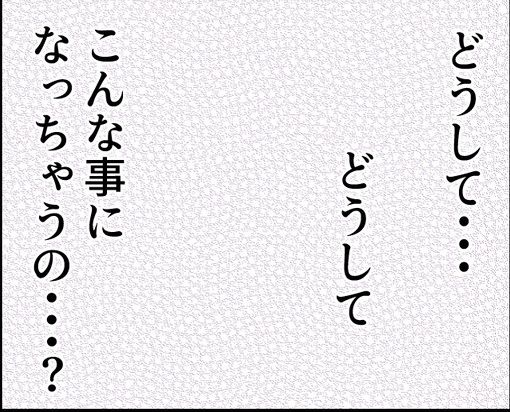 どうして・・・
どうして
こんな事に
なっちゃうの・・・?